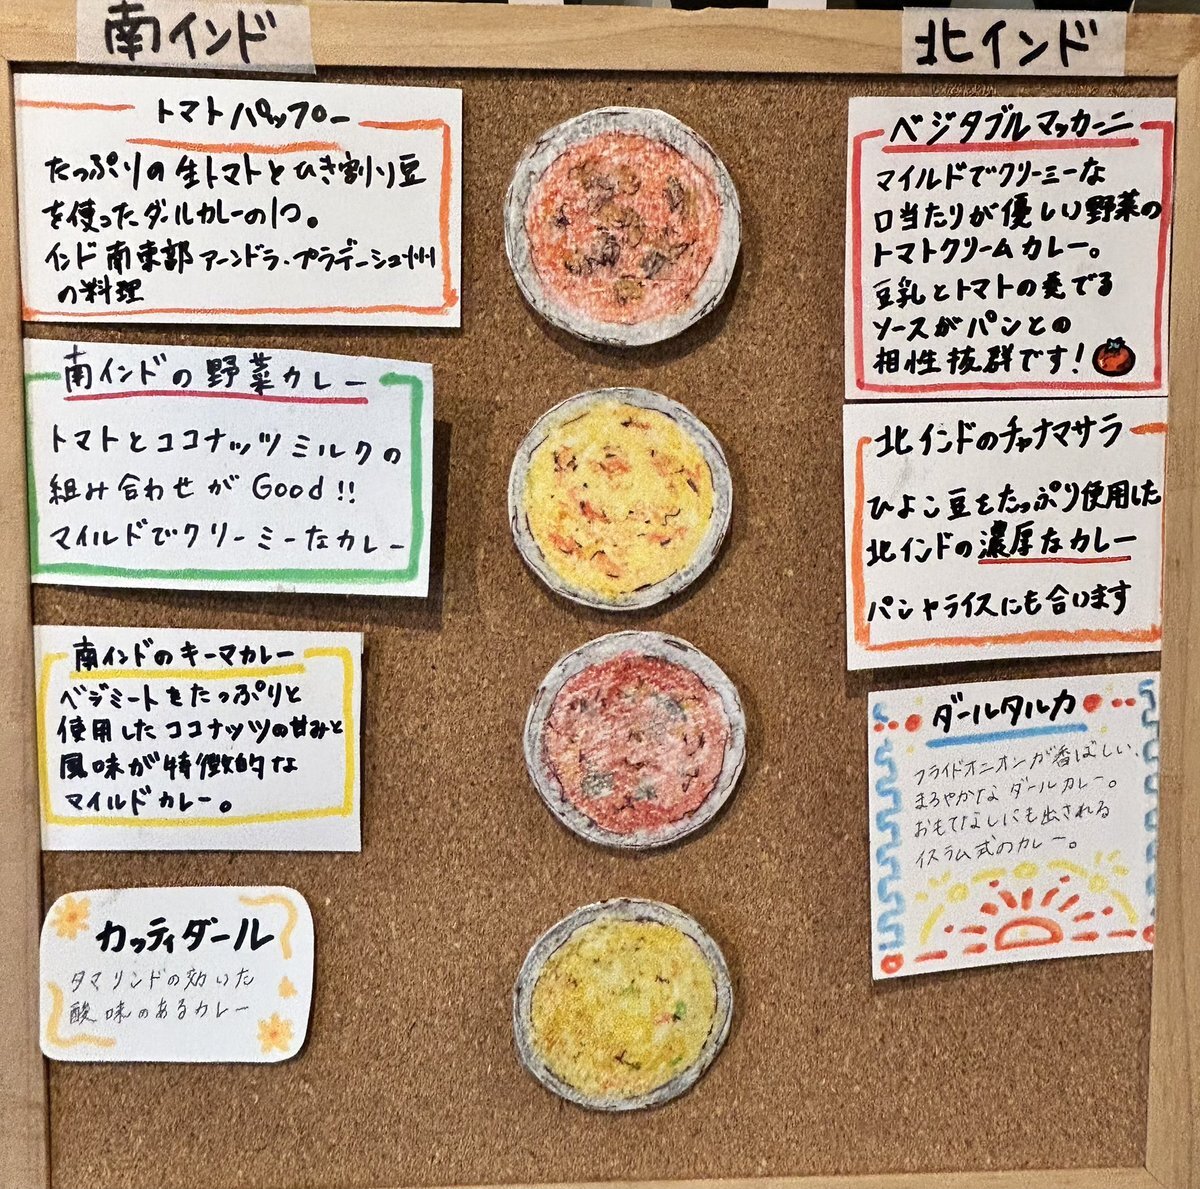 南インド
トマトパップー
たっぷりの生トマトとひき割り豆
を使ったダールカレーの1つ。
インド南東部アーンドラ・プラデーシュ州
の料理
南インドの野菜カレー
トマトとココナッツミルクの
組み合わせがGood!!
マイルドでクリーミーなカレー
南インドのキーマカレー
ベジミートをたっぷりと
使用したココナッツの甘みと
風味が特徴的な
マイルドカレー。
カッティダール
タマリンドの効いた
酸味のあるカレー
北インド
ベジタブルマッカーニ
マイルドでクリーミーな
口当たりが優しい野菜の
トマトクリームカレー。
豆乳とトマトの奏でる
ソースがパンとの
相性抜群です!
北インドのチャナマサラ
ひよこ豆をたっぷり使用した
北インドの濃厚なカレー
パンやライスにも合います
ダールタルカ
フライドオニオンが香ばしい、
まろやかなダールカレー。
おもてなしにも出される
イスラム式のカレー。